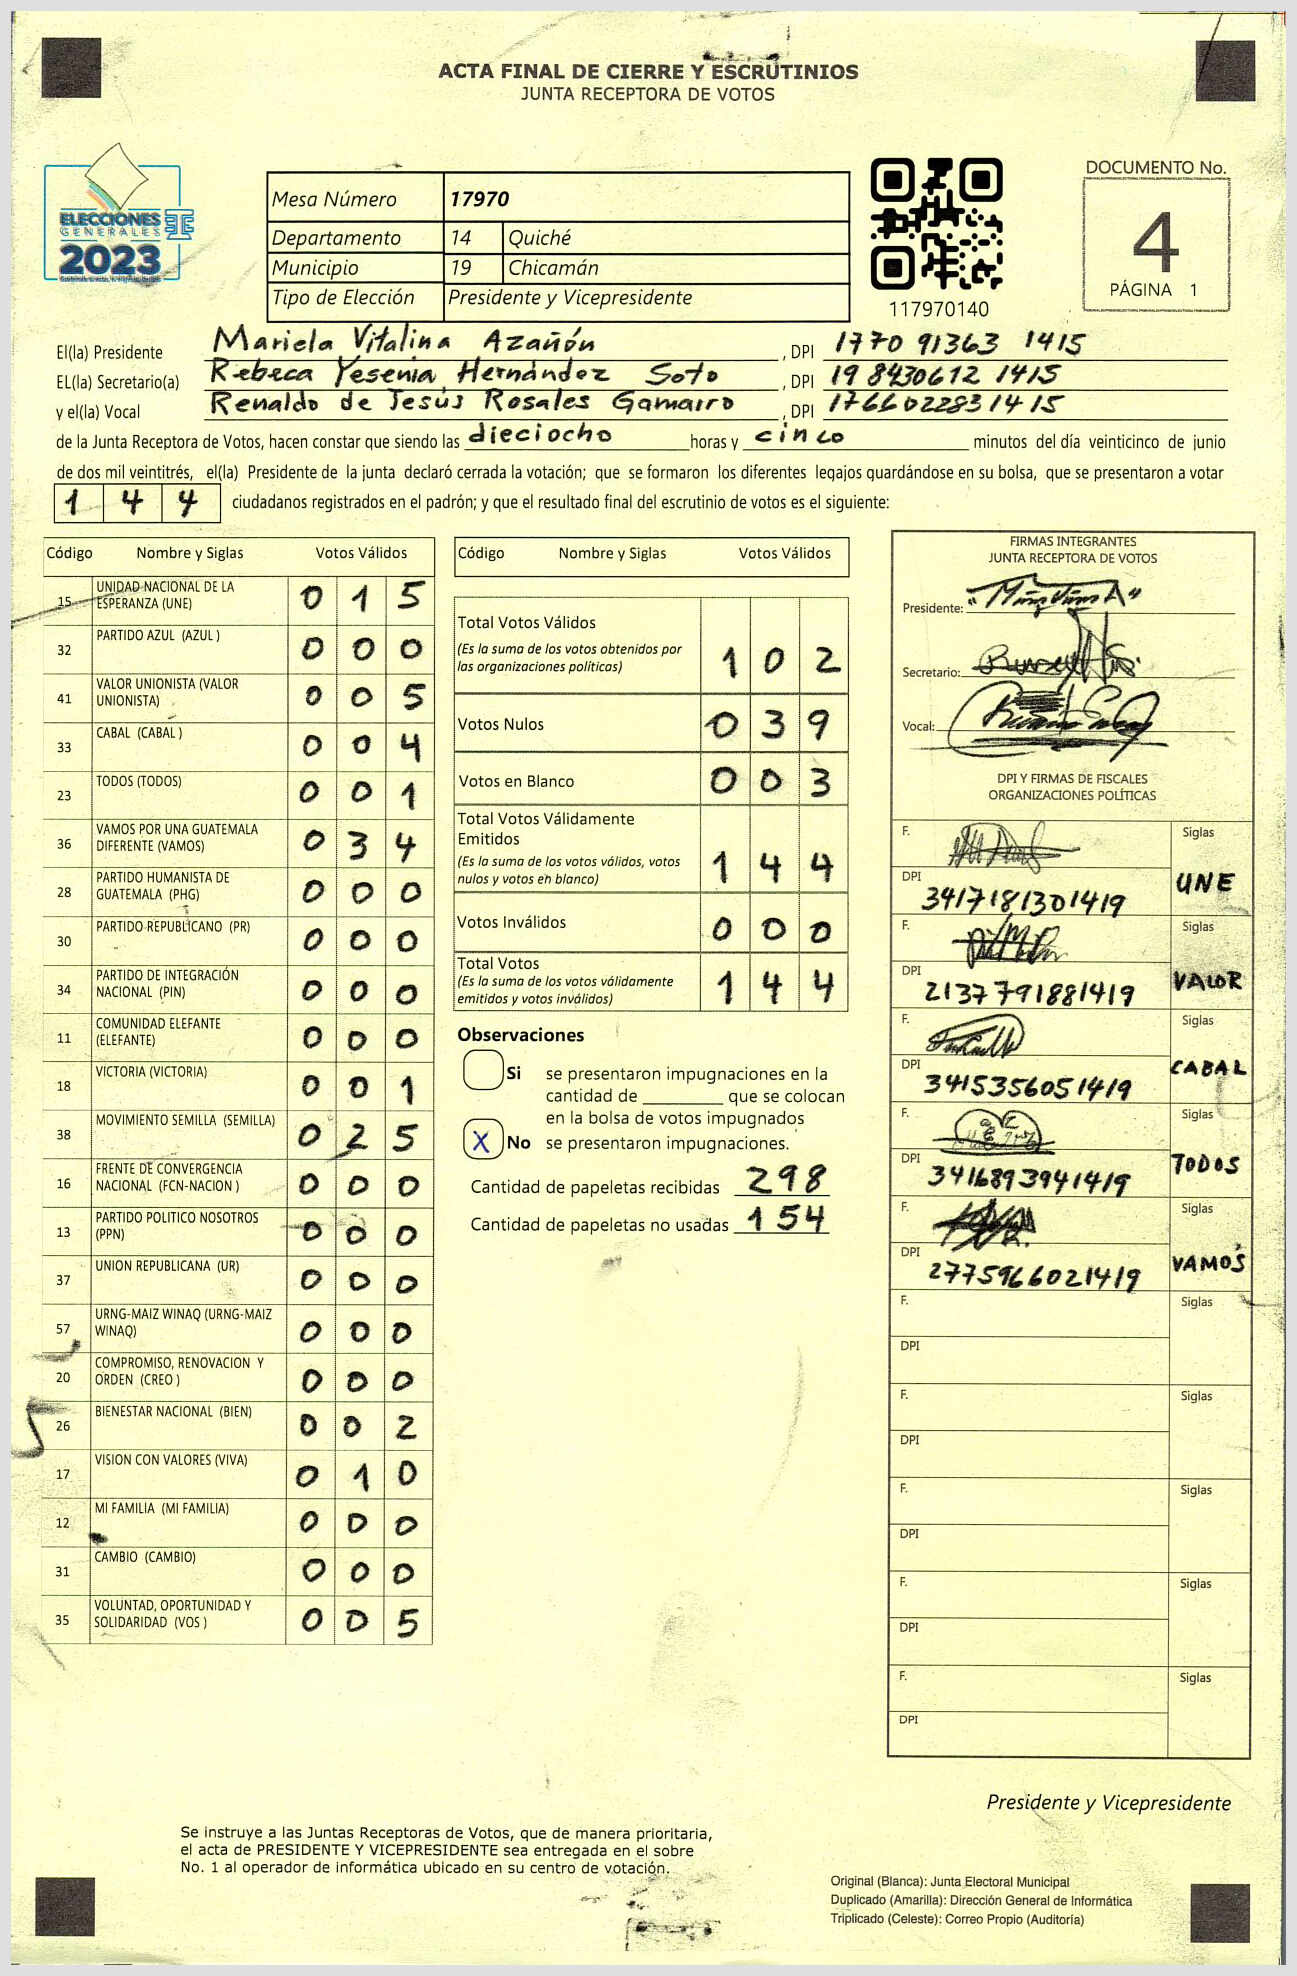 ACTA FINAL DE CIERRE Y ESCRUTINIOS
JUNTA RECEPTORA DE VOTOS
ELECCIONES
GENERALES
2023
Mesa Número 17970
Departamento 14 Quiché
Municipio 19 Chicamán
Tipo de Elección Presidente y Vicepresidente
117970140
DOCUMENTO No.
4
PÁGINA 1
El(la) Presidente Mariela Vitalina Azañón, DPI 1770 91363 1415
EL(la) Secretario(a) Rebeca Yesenia Hernández Soto, DPI 19 8430612 1415
y el(la) Vocal Renaldo de Jesús Rosales Gamarro, DPI 1766022831415
de la Junta Receptora de Votos, hacen constar que siendo las dieciocho horas y cinco minutos del día veinticinco de junio
de dos mil veintitrés, el(la) Presidente de la junta declaró cerrada la votación; que se formaron los diferentes legajos guardándose en su bolsa, que se presentaron a votar
1 4 4 ciudadanos registrados en el padrón; y que el resultado final del escrutinio de votos es el siguiente:
Código Nombre y Siglas Votos Válidos
15 UNIDAD NACIONAL DE LA ESPERANZA (UNE) 0 1 5
32 PARTIDO AZUL (AZUL ) 0 0 0
41 VALOR UNIONISTA (VALOR UNIONISTA) 0 0 5
33 CABAL (CABAL ) 0 0 4
23 TODOS (TODOS) 0 0 1
36 VAMOS POR UNA GUATEMALA DIFERENTE (VAMOS) 0 3 4
28 PARTIDO HUMANISTA DE GUATEMALA (PHG) 0 0 0
30 PARTIDO REPUBLICANO (PR) 0 0 0
34 PARTIDO DE INTEGRACIÓN NACIONAL (PIN) 0 0 0
11 COMUNIDAD ELEFANTE (ELEFANTE) 0 0 0
18 VICTORIA (VICTORIA) 0 0 1
38 MOVIMIENTO SEMILLA (SEMILLA) 0 2 5
16 FRENTE DE CONVERGENCIA NACIONAL (FCN-NACION ) 0 0 0
13 PARTIDO POLITICO NOSOTROS (PPN) 0 0 0
37 UNION REPUBLICANA (UR) 0 0 0
57 URNG-MAIZ WINAQ (URNG-MAIZ WINAQ) 0 0 0
20 COMPROMISO, RENOVACION Y ORDEN (CREO ) 0 0 0
26 BIENESTAR NACIONAL (BIEN) 0 0 2
17 VISION CON VALORES (VIVA) 0 1 0
12 MI FAMILIA (MI FAMILIA) 0 0 0
31 CAMBIO (CAMBIO) 0 0 0
35 VOLUNTAD, OPORTUNIDAD Y SOLIDARIDAD (VOS ) 0 0 5
Código Nombre y Siglas Votos Válidos
Total Votos Válidos
(Es la suma de los votos obtenidos por
las organizaciones políticas) 1 0 2
Votos Nulos 0 3 9
Votos en Blanco 0 0 3
Total Votos Válidamente
Emitidos
(Es la suma de los votos válidos, votos
nulos y votos en blanco) 1 4 4
Votos Inválidos 0 0 0
Total Votos
(Es la suma de los votos válidamente
emitidos y votos inválidos) 1 4 4
Observaciones
Si se presentaron impugnaciones en la
cantidad de ________ que se colocan
en la bolsa de votos impugnados
X No se presentaron impugnaciones.
Cantidad de papeletas recibidas 298
Cantidad de papeletas no usadas 154
FIRMAS INTEGRANTES
JUNTA RECEPTORA DE VOTOS
Presidente:
Secretario:
Vocal:
DPI Y FIRMAS DE FISCALES
ORGANIZACIONES POLÍTICAS
F. Siglas
DPI 3417181301419 UNE
F. Siglas
DPI 2137791881419 VALOR
F. Siglas
DPI 3415356051419 CABAL
F. Siglas
DPI 3416893941419 TODOS
F. Siglas
DPI 2775966021419 VAMOS
F. Siglas
DPI
F. Siglas
DPI
F. Siglas
DPI
F. Siglas
DPI
F. Siglas
DPI
Presidente y Vicepresidente
Se instruye a las Juntas Receptoras de Votos, que de manera prioritaria,
el acta de PRESIDENTE Y VICEPRESIDENTE sea entregada en el sobre
No. 1 al operador de informática ubicado en su centro de votación.
Original (Blanca): Junta Electoral Municipal
Duplicado (Amarilla): Dirección General de Informática
Triplicado (Celeste): Correo Propio (Auditoría)